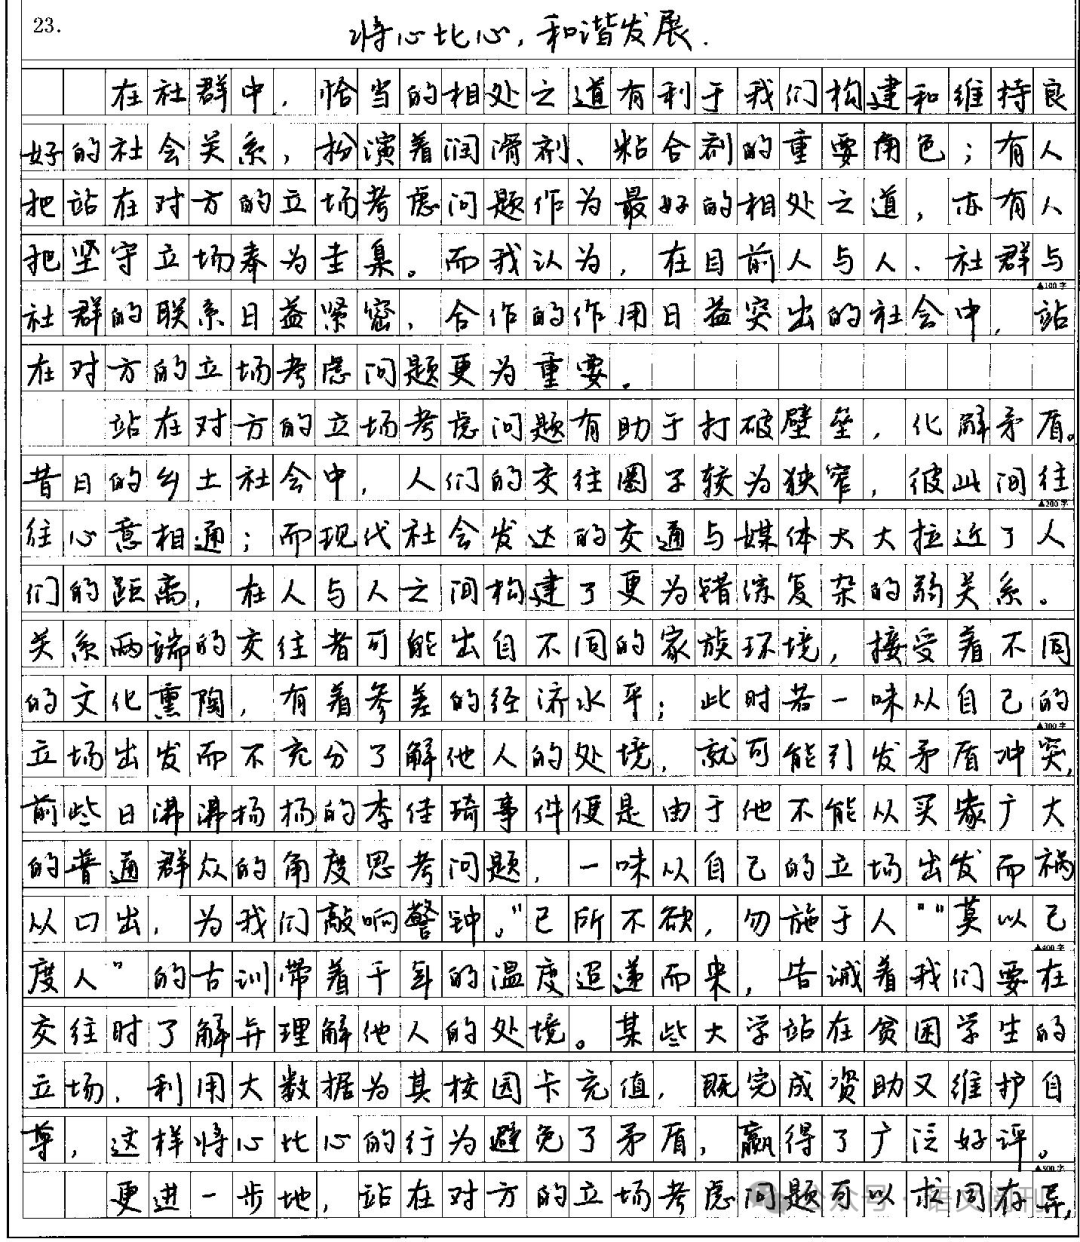 23.
将心比心，和谐发展.
在社群中，恰当的相处之道有利于我们构建和维持良
好的社会关系，扮演着润滑剂、粘合剂的重要角色；有人
把站在对方的立场考虑问题作为最好的相处之道，亦有人
把坚守立场奉为圭臬。而我认为，在目前人与人、社群与
▲100字
社群的联系日益紧密，合作的作用日益突出的社会中，站
在对方的立场考虑问题更为重要。
站在对方的立场考虑问题有助于打破壁垒，化解矛盾。
昔日的乡土社会中，人们的交往圈子较为狭窄，彼此间往
▲200字
往心意相通；而现代社会发达的交通与媒体大大拉近了人
们的距离，在人与人之间构建了更为错综复杂的弱关系。
关系两端的交往者可能出自不同的家族环境，接受着不同
的文化熏陶，有着参差的经济水平；此时若一味从自己的
▲300字
立场出发而不充分了解他人的处境，就可能引发矛盾冲突，
前些日沸沸扬扬的李佳琦事件便是由于他不能从买家广大
的普通群众的角度思考问题，一味从自己的立场出发而祸
从口出，为我们敲响警钟。"己所不欲，勿施于人""莫以己
▲400字
度人"的古训带着千年的温度迢递而来，告诫着我们要在
交往时了解并理解他人的处境。某些大学站在贫困学生的
立场，利用大数据为其校园卡充值，既完成资助又维护自
尊，这样将心比心的行为避免了矛盾，赢得了广泛好评。
▲500字
更进一步地，站在对方的立场考虑问题可以求同存异，
公众号·语文周刊